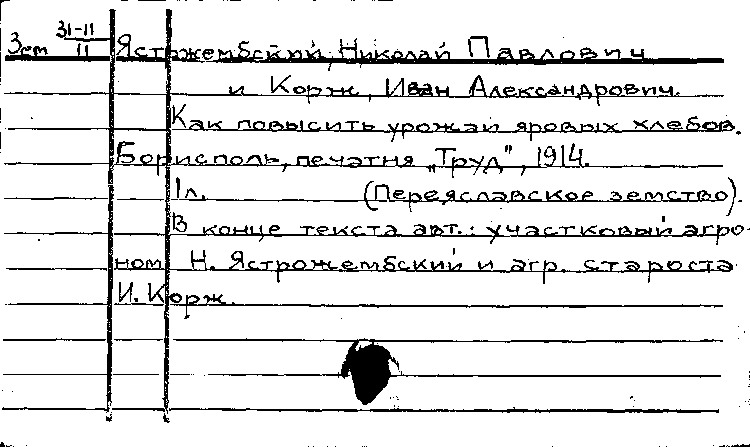 Зем 31-11/11
Ястржембский, Николай Павлович
и Корж, Иван Александрович.
Как повысить урожай яровых хлебов.
Борисполь, печатня „Труд", 1914.
1л. (Переяславское земство).
В конце текста авт.: участковый агро-
ном Н. Ястрожембский и агр. староста
И. Корж.